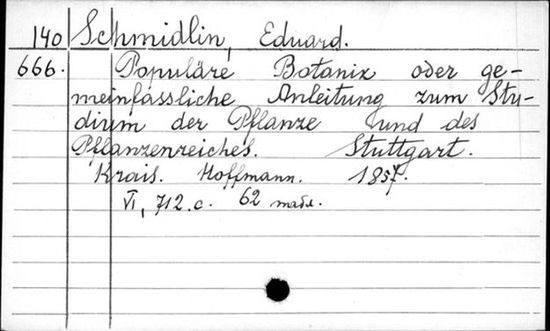 140 Schmidlin, Eduard.
666. Populäre Botanik oder ge-
meinfassliche Anleitung zum Stu-
dium der Pflanze und des
Pflanzenreiches. Stuttgart.
Krais. Hoffmann. 1857.
VI, 712.c. 62 табл.